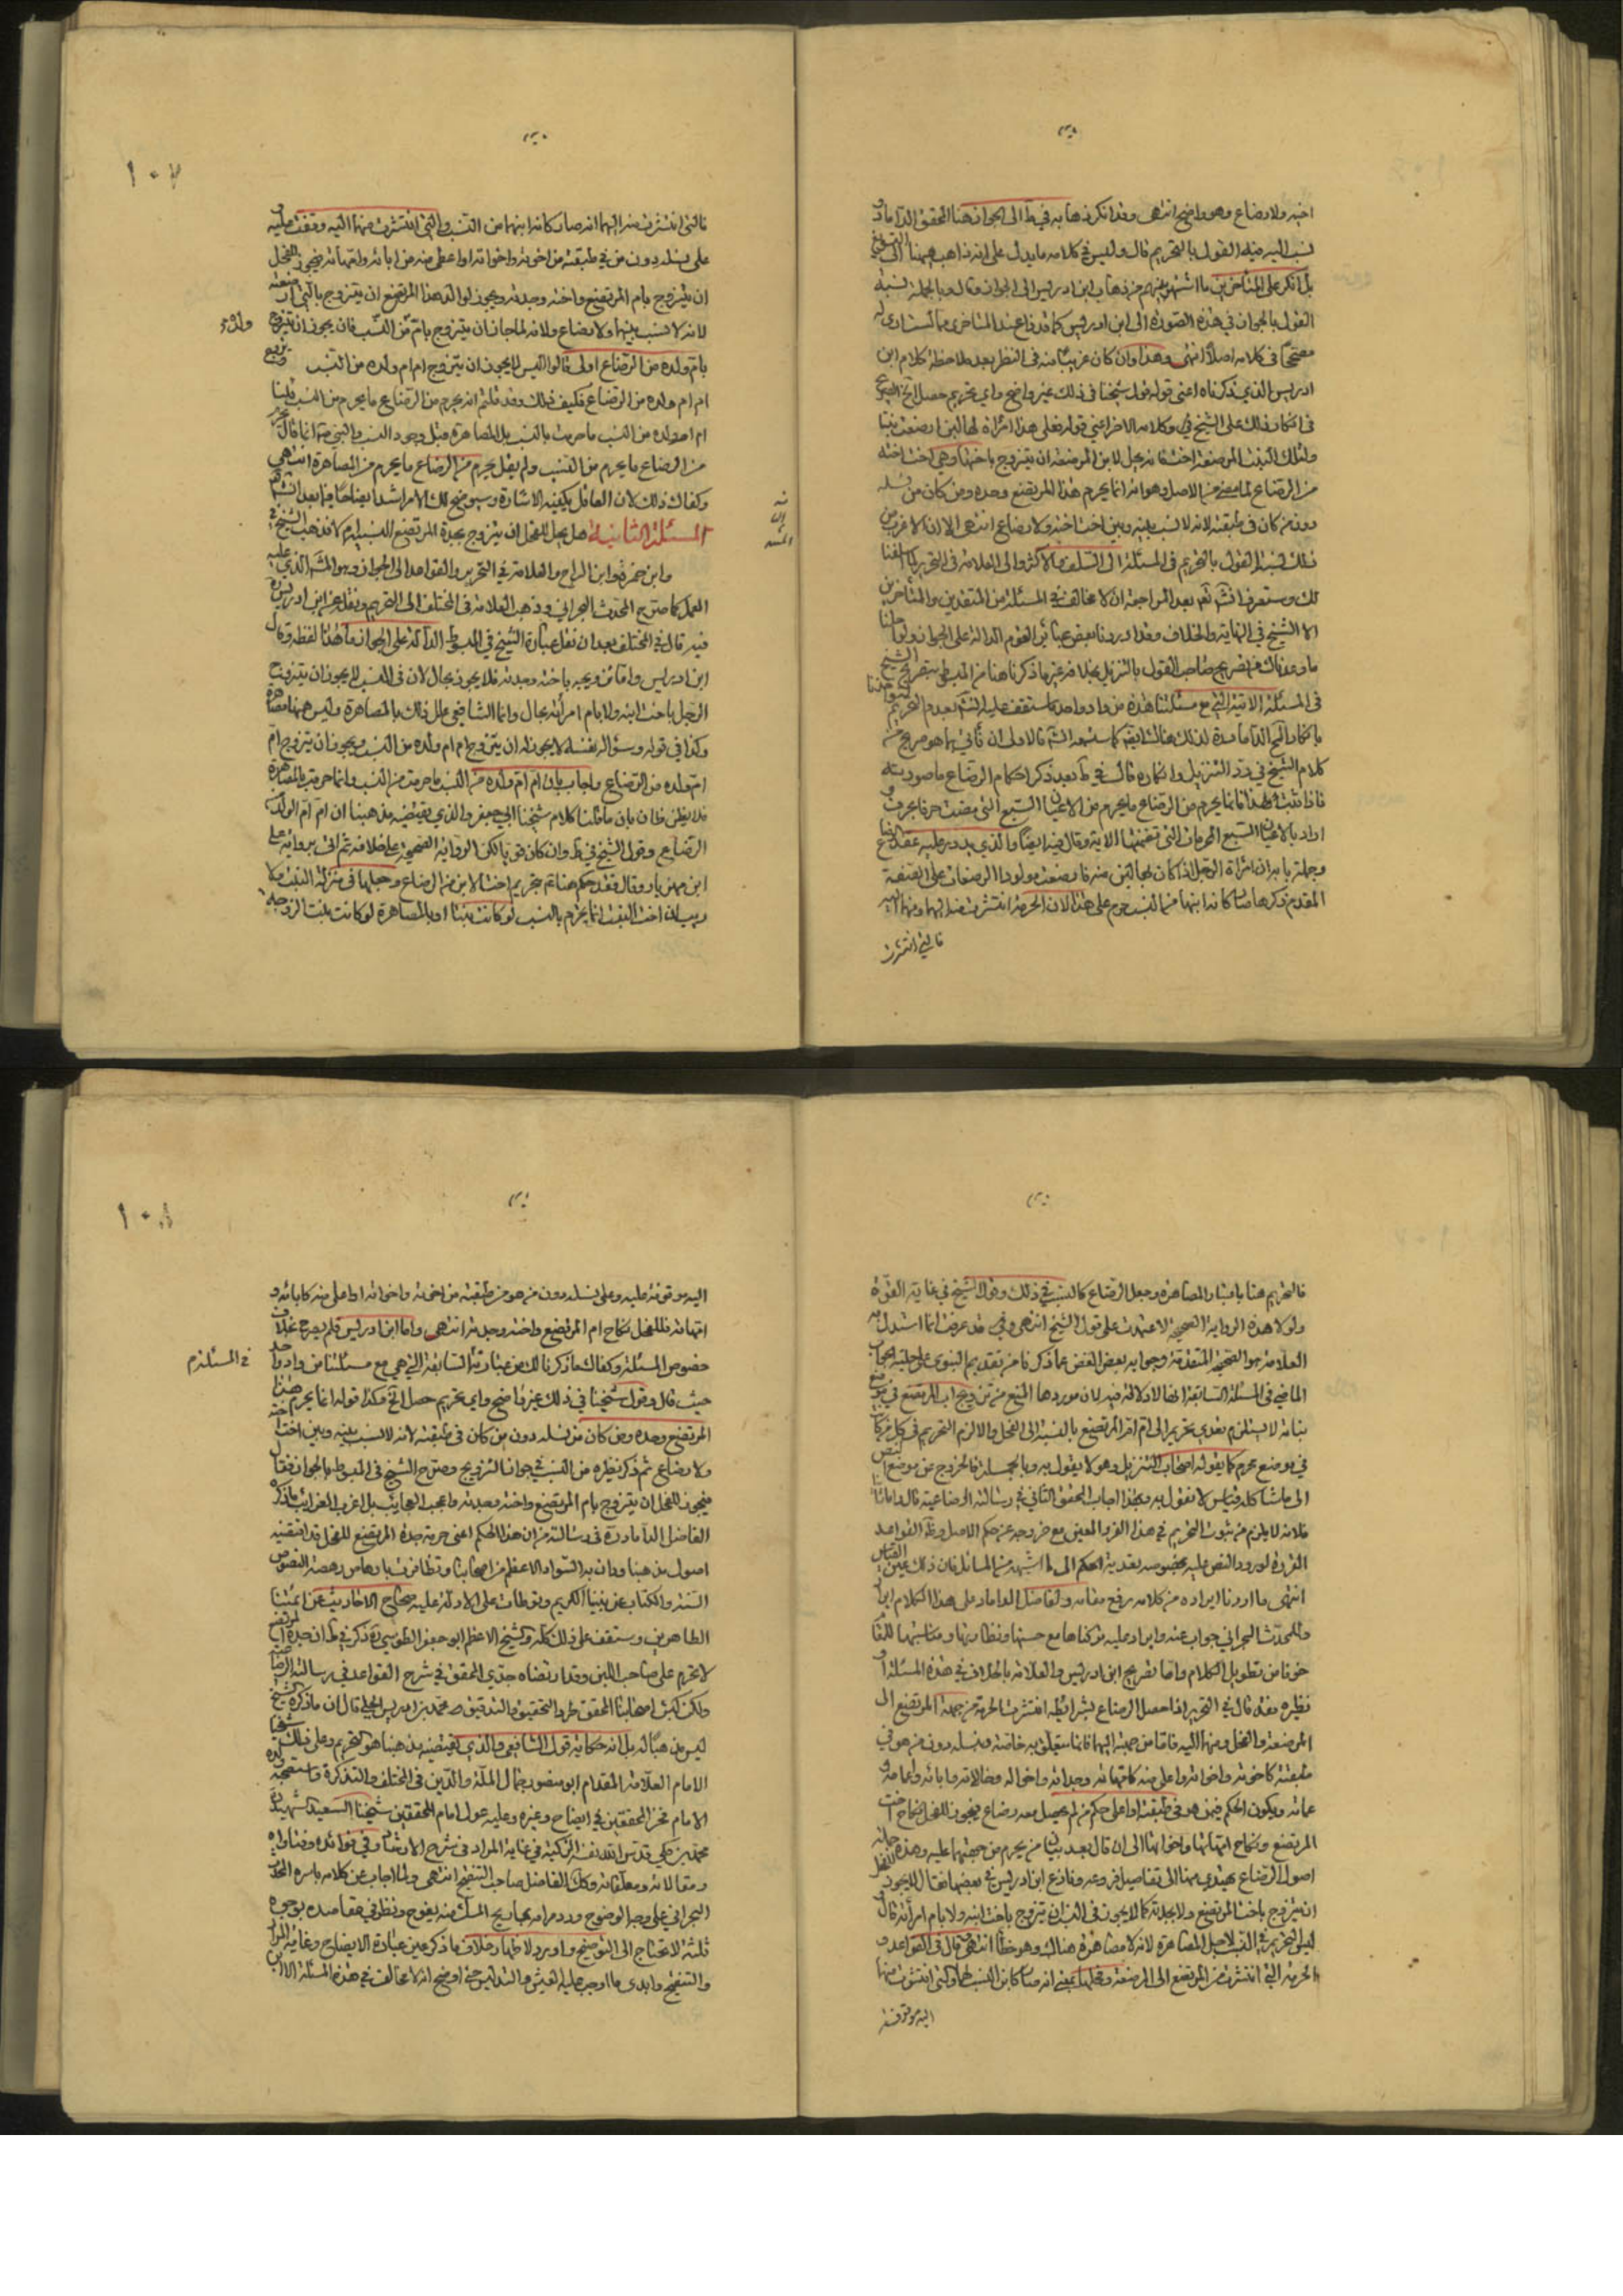 اخيه ولا رضاع وهو واضح انتهى وقد انكر ذهابه في ط الى الجواز هنا المحقق الداماد و
نسب اليه فيه القول بالتحريم قال وليس في كلامه ما يدل على انه ذاهب ههنا الى التسويغ
بل انكر على المتأخرين ما اشتهر بينهم من ذهاب ابن ادريس الى الجواز وقال وبالجملة نسبة
القول بالجواز في هذه الصورة الى ابن ادريس كما قد ذاع عند المتأخرين مما لست ادري له
مصححا في كلامه اصلا انتهى وهذا وان كان غريبا منه في النظر بعد ملاحظة كلام ابن
ادريس الذي ذكرناه اعني قوله قول شيخنا في ذلك غير واضح واي تحريم حصل الخ الصريح
في انكار ذلك على الشيخ في وكلامه الاخر اعني قوله فعلى هذا امرأة لها لبن ارضعت بنتا
ولتلك البنت المرضعة اخت فانه يحل لابن المرضعة ان يتزوج باختها وهي اخت اخته
من الرضاع لما مضى من الاصل وهو انه انما يحرم هذا المرتضع وحده ومن كان من نسله
دون من كان في طبقته لانه لا نسب بينه وبين اخت اخته ولا رضاع انتهى الا ان الاغرب من
ذلك نسبة القول بالتحريم في المسئلة الى السلف والاكثر والى العلامة في التحرير كما اسلفنا
لك وستعرف انشاء الله تعالى بعد المراجعة ان لا مخالف في المسئلة من المتقدمين والمتأخرين
الا الشيخ في النهاية والخلاف وقد اوردنا بعض عبائر القوم الدالة على الجواز ولو لا
في المسئلة الاتية التي مع مسئلتنا هذه من واد واحد كما ستقف عليه انشاء الله بعدم التحريم
كلام الشيخ في رد التنزيل وانكاره قال في ط بعد ذكر احكام الرضاع ما صورته
فاذا ثبت هذا فانما يحرم من الرضاع ما يحرم من الاعيان السبع التي مضت حرفا بحرف و
اراد بالاعيان السبع المحرمات التي تضمنتها الاية وقال فيه ايضا والذي يدور عليه عقد الرضاع
وجملة بابه ان امرأة الرجل اذا كان بها لبن منه فارضعت مولودا الرضعات على الصفة
المقدم ذكرها صار كانه ابنهما من النسب حرم على هذا لان الحرمة انتشرت منه اليهما ومنهما اليه
فالتي انتشرت
١٠٧
فالتي انتشرت منه اليهما انه صار كانه ابنهما من النسب والتي انتشرت منهما اليه وقفت عليه و
على نسله دون من في طبقته من اخوته واخواته او اعلى منه من ابائه وامهاته فيجوز للفحل
ان يتزوج بام المرتضع واخته وجدته ويجوز لوالد هذا المرتضع ان يتزوج بالتي ارضعته
لانه لا نسب بينهما ولا رضاع ولانه لما جاز ان يتزوج بام من النسب فان يجوز ان يتزوج
ولده
بام ولده من الرضاع اولى قالوا اليس لا يجوز ان يتزوج ام ام ولده من النسب
ام ام ولده من الرضاع فكيف ذلك وقد قلتم انه يحرم من الرضاع ما يحرم من النسب قلنا
ام ام ولده من النسب ما حرمت بالنسب بل المصاهرة قبل وجود النسب والنبي ص انما قال يحرم
من الرضاع ما يحرم من النسب ولم يقل يحرم من الرضاع ما يحرم من المصاهرة انتهى
وكفاك ذلك لان العاقل يكفيه الاشارة وسيوضح لك الامر اشد ايضاحا فيما بعد انشاء الله
المسئلة الثانية هل يحل للفحل ان يتزوج بجدة المرتضع للنسب ام لا فذهب الشيخ في
وابن حمزة وابن البراج والعلامة في التحرير والقواعد الى الجواز وهو المشهور الذي عليه
العمل كما صرح المحدث البحراني وذهب العلامة في المختلف الى التحريم ونقل عن ابن ادريس
فيه قال في المختلف بعد ان نقل عبارة الشيخ في المبسوط الدالة على الجواز ما هذا لفظه وقال
ابن ادريس واما تزويجه باخته وجدته فلا يجوز بحال لان في النسب لا يجوز ان يتزوج
الرجل باخت ابنه ولا بام امرأته بحال وانما الشافعي علل ذلك بالمصاهرة وليس ههنا مصاهرة
وكذا في قوله وسؤاله نفسه لا يجوز له ان يتزوج ام ام ولده من النسب ويجوز ان يتزوج ام
ام ولده من الرضاع واجاب بان ام ام ولده من النسب ما حرمت من النسب وانما حرمت بالمصاهرة
فلا يظن ظان بان ما قلنا كلام شيخنا ابي جعفر والذي يقتضيه مذهبنا ان ام ام الولد
الرضاع وقول الشيخ في ط وان كان قويا لكن الرواية الصحيحة على خلافه ثم اتى برواية علي
ابن مهزيار وقال فقد حكم هنا ع بتحريم اخت الابن من الرضاع وجعلها في منزلة البنت ولا
ريب ان اخت البنت انما يحرم بالنسب لو كانت بنتا او بالمصاهرة لو كانت بنت الزوجة
فالتحريم هنا باعتبار المصاهرة وجعل الرضاع كالنسب في ذلك وقول الشيخ في غاية القوة
ولو لا هذه الرواية الصحيحة لاعتمدت على قول الشيخ انتهى وفي قد عرفت انما استدل به
العلامة هو الصحيحة المتقدمة وجوابه بعض الغض عما ذكرنا من تقديم النبوي على حلية الجواب
الماضي في المسئلة السابقة ايضا لا دلالة فيه لان موردها المنع من تزويج اب المرتضع في
بناته لا يستلزم تعدي تحريم الى ام ام المرتضع بالنسبة الى الفحل والا لزم التحريم في كل
في موضع يحرم كما يقوله اصحاب التنزيل وهو لا يقول به وبالجملة فالخروج عن موضع النص
الى ما شاكله قياس لا نقول به وبهذا اجاب المحقق الثاني في رسالته الرضاعية قال واما ثانيا
فلانه لا يلزم من ثبوت التحريم في هذا الفرد المعين مع خروجه عن حكم الاصل وظاهر القواعد
المقررة لورود النص عليه بخصوصه تعدية الحكم الى ما اشبهه من المسائل فان ذلك عين القياس
انتهى ما اردنا ايراده من كلامه رفع مقامه وللفاضل الداماد على هذا الكلام ايراد
وللمحدث البحراني جواب عنه وايراد عليه تركناها مع حسنها ونظارتها ومناسبتها للمقام
خوفا من تطويل الكلام واما تصريح ابن ادريس والعلامة بالخلاف في هذه المسئلة او
نظيره فقد قال في التحرير اذا حصل الرضاع بشرائطه انتشرت الحرمة من جهة المرتضع الى
المرضعة والفحل ومنهما اليه فاما من جهته اليهما فانما يتعلق به خاصة وبنسله دون من هو في
طبقته كاخوته واخواته واعلى منه كامهاته وجداته واخواله وخالاته وابائه واعمامه و
عماته ويكون الحكم فيمن هو في طبقته او اعلى حكم من لم يحصل معه رضاع فيجوز للفحل نكاح اخت
المرتضع ونكاح امهاتها واخواتها الى ان قال بعد بيان من يحرم من جهتهما عليه وهذه جملة
اصول الرضاع يهتدي منها الى تفاصيل فروعه ونازع ابن ادريس في بعضها فقال لا يجوز للفحل
ان يتزوج باخت المرتضع ولا بجدته كما لا يجوز في النسب ان يتزوج باخت ابنه ولا بام امرأته قال
ليس التحريم في النسب لاجل المصاهرة لانه لا مصاهرة هناك وهو خطأ انتهى وقال في القواعد و
الحرمة التي انتشرت من المرتضع الى المرضعة وفحلها بمعنى انه صار كابن النسب لهما والتي انتشرت منهما
اليه موقوفة
١٠٨
اليه موقوفة عليه وعلى نسله دون من هو من طبقته من اخوته واخواته او اعلى منه كابائه و
امهاته فللفحل نكاح ام المرتضع واخته وجدته انتهى واما ابن ادريس فلم يصرح بخلاف
في المسئلة
خصوص المسئلة وكفاك ما ذكرنا لك من عبارته السابقة التي هي مع مسئلتنا من واد واحد
حيث قال وقول شيخنا في ذلك غير واضح واي تحريم حصل الخ وكذا قوله انما يحرم هذا
المرتضع وحده ومن كان من نسله دون من كان في طبقته لانه لا نسب بينه وبين اخت اخته
ولا رضاع ثم ذكر نظيره من النسب في جواز التزويج وصرح الشيخ في المبسوط بالجواز فقال
فيجوز للفحل ان يتزوج بام المرتضع واخته وجدته واعجب العجايب بل اغرب الغرائب ما ذكره
الفاضل الداماد ره في رسالته من ان هذا الحكم اعني حرمة جدة المرتضع للفحل قد اقتضته
اصول مذهبنا ودان به السواد الاعظم من اصحابنا وتظافرت بارهاص رهصة النصوص
السنة والكتاب عن نبينا الكريم وتوطات على الادلة عليه صحاح الاحاديث عن ائمتنا
الطاهرين وستقف على ذلك كله وشيخ الاعظم ابو جعفر الطوسي ره ذكر في ط ان جدة المرتضع
لا تحرم على صاحب اللبن وقد ارتضاه جدي المحقق في شرح القواعد في رسالته الرضاعية
ولكن كبش اصحابنا المحقق طرا التحقيق والتدقيق محمد بن ادريس الحلي قال ان ما ذكره الشيخ
ليس مذهبا له بل انه حكاية قول الشافعي والذي يقتضيه مذهبنا هو التحريم وعلى ذلك
الامام العلامة المقدام ابو منصور جمال الملة والدين في المختلف والتذكرة واستصحه ولده
الامام فخر المحققين في ايضاح وغيره وعليه عول امام المحققين شيخنا السعيد الشهيد
محمد بن مكي قدس الله نفسه الزكية في غاية المراد في شرح الارشاد وفي فوائده وفتاواه
ومقالاته ومعلقاته وكذا الفاضل صاحب التنقيح انتهى ولما اجاب عن كلامه باسره المحدث
البحراني على وجه الوضوح ورد مرامه بما ريح المسك منه يفوح ونظر في مقاصده بوجوه
ثلثة لا تحتاج الى التوضيح واورد لاظهار خلاف ما ذكره عين عبارة الايضاح وغاية المراد
والتنقيح وابدى ما اوجب عليه الغش والتدليس حتى اوضح انه لا مخالف في هذه المسئلة الا ابن